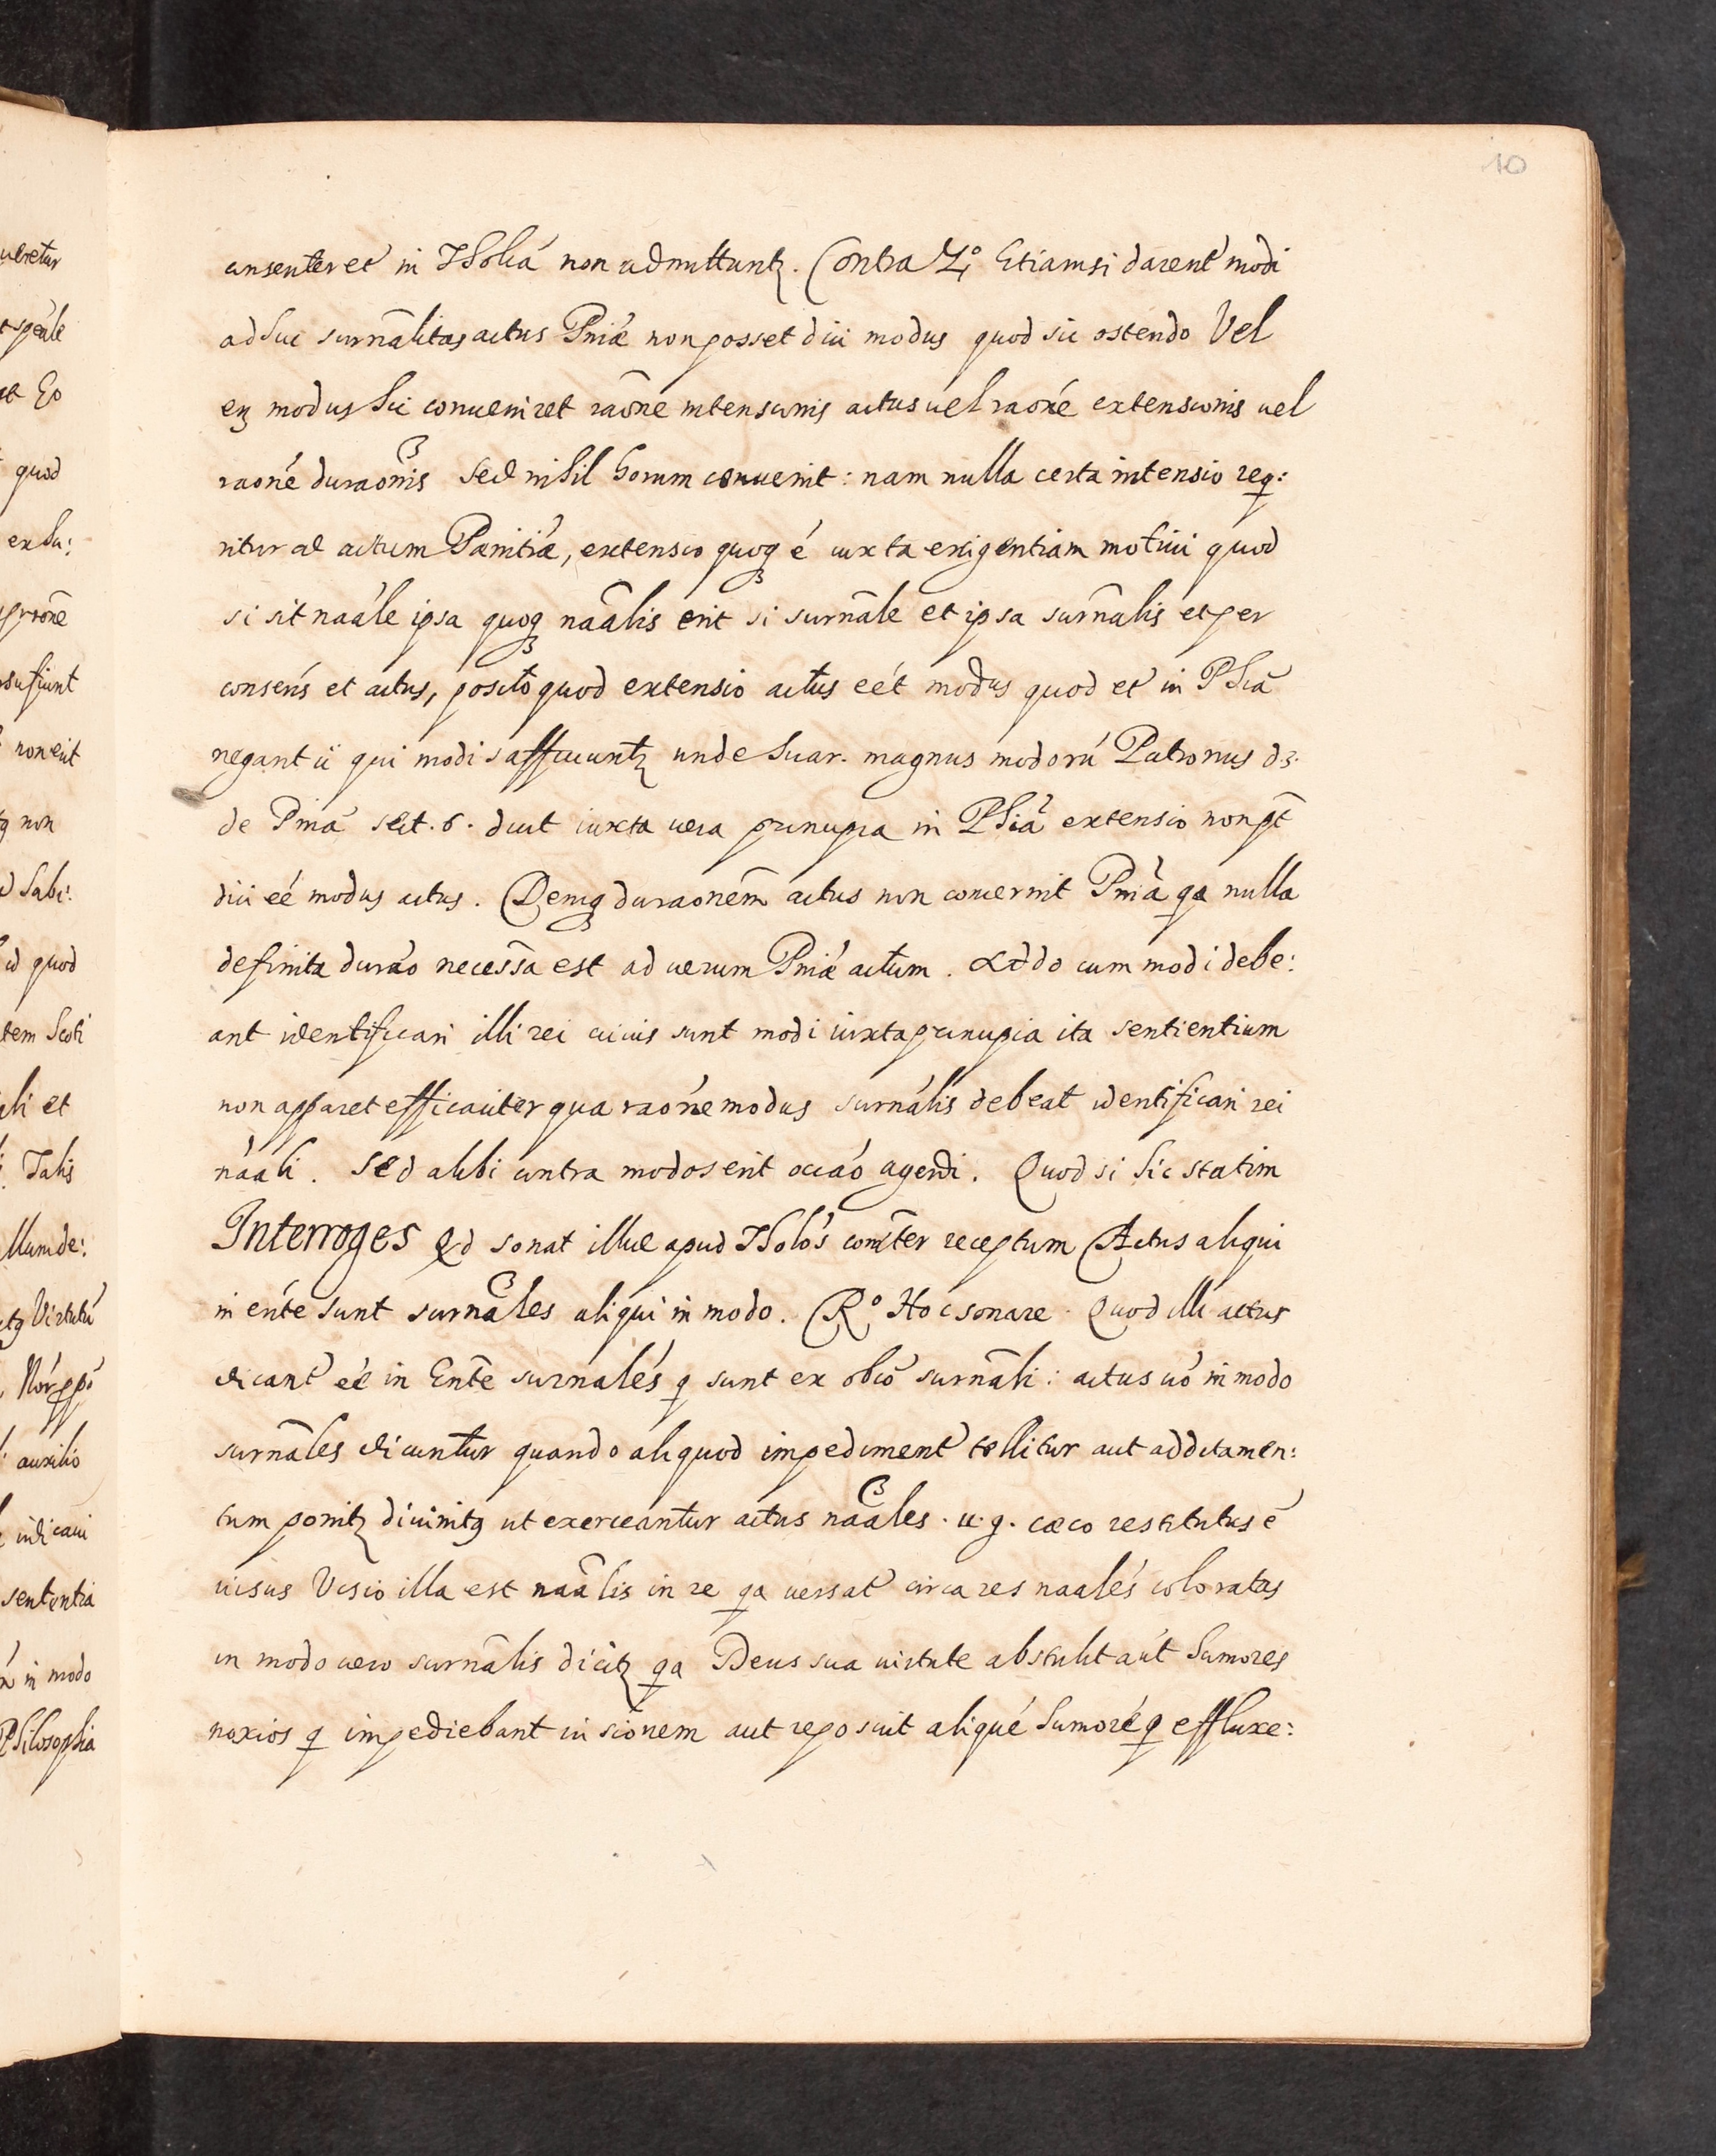 10
consenter et in Tholiá non admittuntꝫ. Contra 2º Etiamsi darent modi
adhuc surnālitas actus Pniæ non posset dici modus quod sic ostendo Vel
eꝫ modus hic conueniret raōne intensionis actus uel raoné extensionis uel
raoné duraōnis sed nihil horum conuenit: nam nulla certa intensio req:
ritur ad actum Pænitiæ, extensio quoqꝫ é iuxta exigentiam motiui quod
si sit naále ipsa quoqꝫ naālis erit si surnāle et ipsa surnālis et per
conseńs et actus, posito quod extensio actus eét modus quod et in Phiā
negant ii qui modis afficiuntꝫ unde Suar. magnus modorú Patronus d3.
de Pniá sect. 6. dicit iuxta uera principia in Phiā extensio non pt̄
dici eé modus actus. Deniqꝫ duraonem̄ actus non concernit Pniá qa nulla
definita duráo necessa̅ est ad uerum Pniæ actum. Addo cum modi debe:
ant identificari illi rei cuius sunt modi iuxta principia ita sentientium
non apparet efficaciter qua raóne modus surnális debeat identificari rei
náali. Sed alibi contra modos erit occáo agendi. Quod si hic statim
Interroges Qd sonat illud apud Tholós com̄ter receptum Actus aliqui
in énte sunt surnāles aliqui in modo. Rº Hoc sonare Quod illi actus
dicant eé in Ente surnalés q sunt ex obiō surnāli: actus uó in modo
surnāles dicuntur quando aliquod impediment tollitur aut additamen:
tum ponitꝫ diuinitꝫ ut exerceantur actus naāles. u.g. cæco restitutus é
uisus Visio illa est naālis in re qa uersat circa res naalés coloratas
in modo uero surnālis dicitꝫ qa Deus sua uirtute abstulit aút humores
noxios q impediebant uisionem aut reposuit aliqué humoré q effluxe: